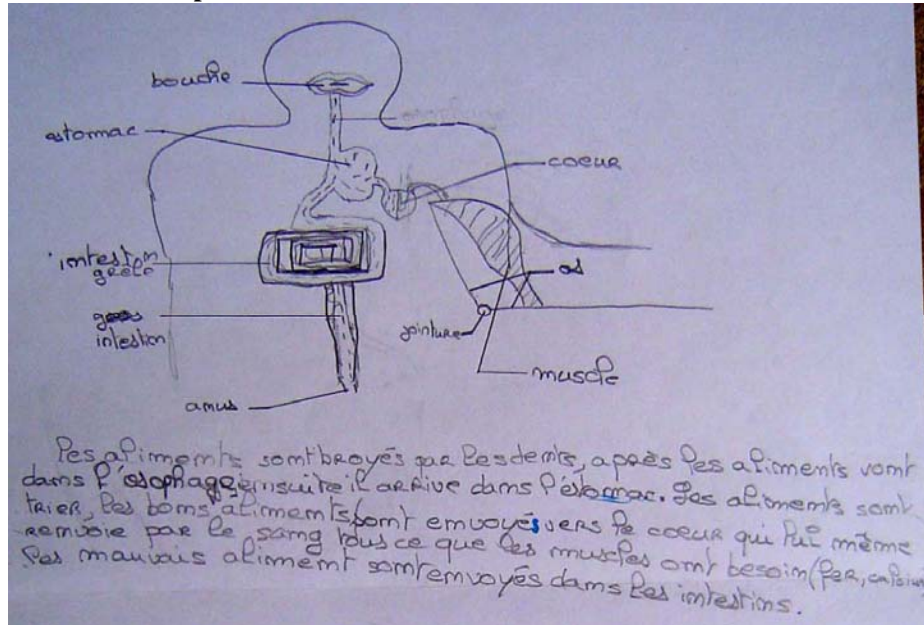 bouche
estomac
coeur
intestion
grele
os
gros
intestion
jointure
muscle
anus
Les aliments sont broyés par les dents, après les aliments vont
dans l'œsophage, ensuite il arrive dans l'éstomac. Les aliments sont
trier, les bons aliments, sont envoyés vers le coeur qui lui même
renvoie par le sang tous ce que les muscles ont besoin (fer, calsium
les mauvais aliment sont envoyés dans les intestins.